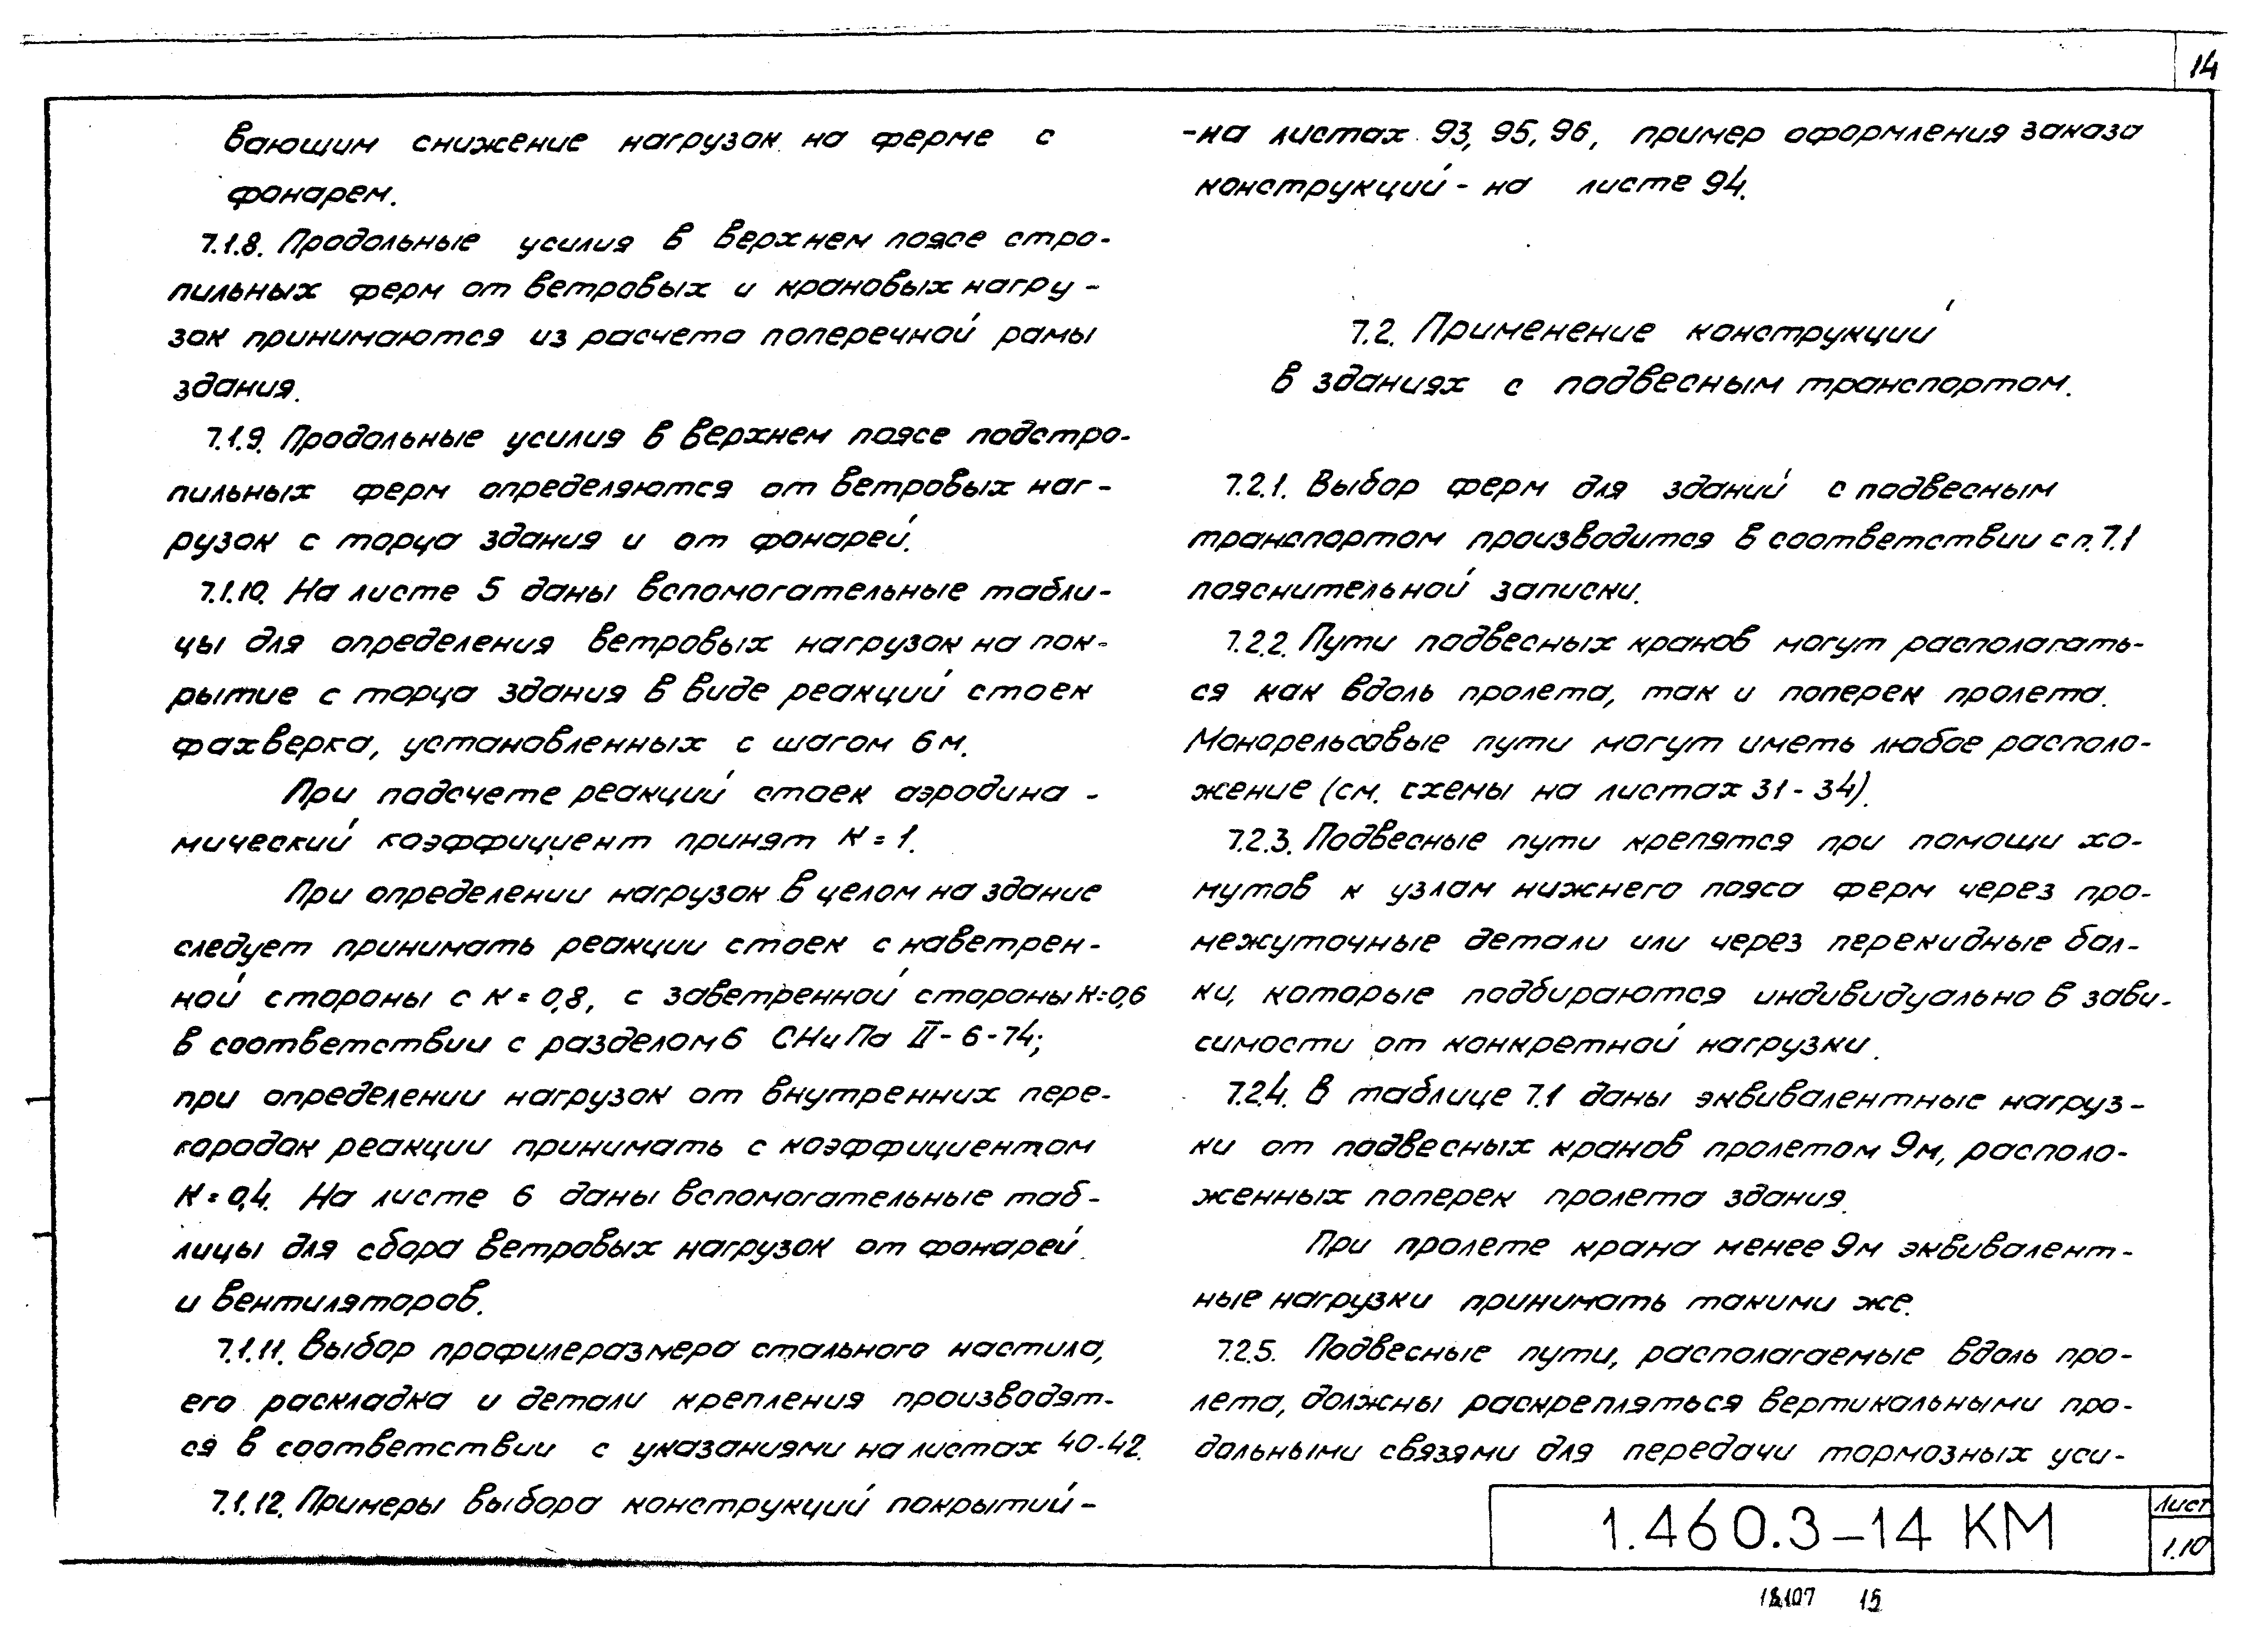 14
вающим снижение нагрузок на ферме с
фонарем.
7.1.8. Продольные усилия в верхнем поясе стро-
пильных ферм от ветровых и крановых нагру-
зок принимаются из расчета поперечной рамы
здания.
7.1.9. Продольные усилия в верхнем поясе подстро-
пильных ферм определяются от ветровых наг-
рузок с торца здания и от фонарей.
7.1.10. На листе 5 даны вспомогательные табли-
цы для определения ветровых нагрузок на пок-
рытие с торца здания в виде реакций стоек
фахверка, установленных с шагом 6 м.
При подсчете реакций стоек аэродина-
мический коэффициент принят К = 1.
При определении нагрузок в целом на здание
следует принимать реакции стоек с наветрен-
ной стороны с К = 0,8, с заветренной стороны К=0,6
в соответствии с разделом 6 СНиПа II-6-74;
при определении нагрузок от внутренних пере-
городок реакции принимать с коэффициентом
К = 0,4. На листе 6 даны вспомогательные таб-
лицы для сбора ветровых нагрузок от фонарей
и вентиляторов.
7.1.11. Выбор профилеразмера стального настила,
его раскладка и детали крепления производят-
ся в соответствии с указаниями на листах 40-42.
7.1.12. Примеры выбора конструкций покрытий-
-на листах 93, 95, 96, пример оформления заказа
конструкций - на листе 94.
7.2. Применение конструкций
в зданиях с подвесным транспортом.
7.2.1. Выбор ферм для зданий с подвесным
транспортом производится в соответствии с п. 7.1
пояснительной записки.
7.2.2. Пути подвесных кранов могут располагать-
ся как вдоль пролета, так и поперек пролета.
Монорельсовые пути могут иметь любое располо-
жение (см. схемы на листах 31-34).
7.2.3. Подвесные пути крепятся при помощи хо-
мутов к узлам нижнего пояса ферм через про-
межуточные детали или через перекидные бал-
ки, которые подбираются индивидуально в зави-
симости от конкретной нагрузки.
7.2.4. В таблице 7.1 даны эквивалентные нагруз-
ки от подвесных кранов пролетом 9м, располо-
женных поперек пролета здания.
При пролете крана менее 9м эквивалент-
ные нагрузки принимать такими же.
7.2.5. Подвесные пути, располагаемые вдоль про-
лета, должны раскрепляться вертикальными про-
дольными связями для передачи тормозных уси-
1.460.3-14 КМ
Лист
1.10
18107 15